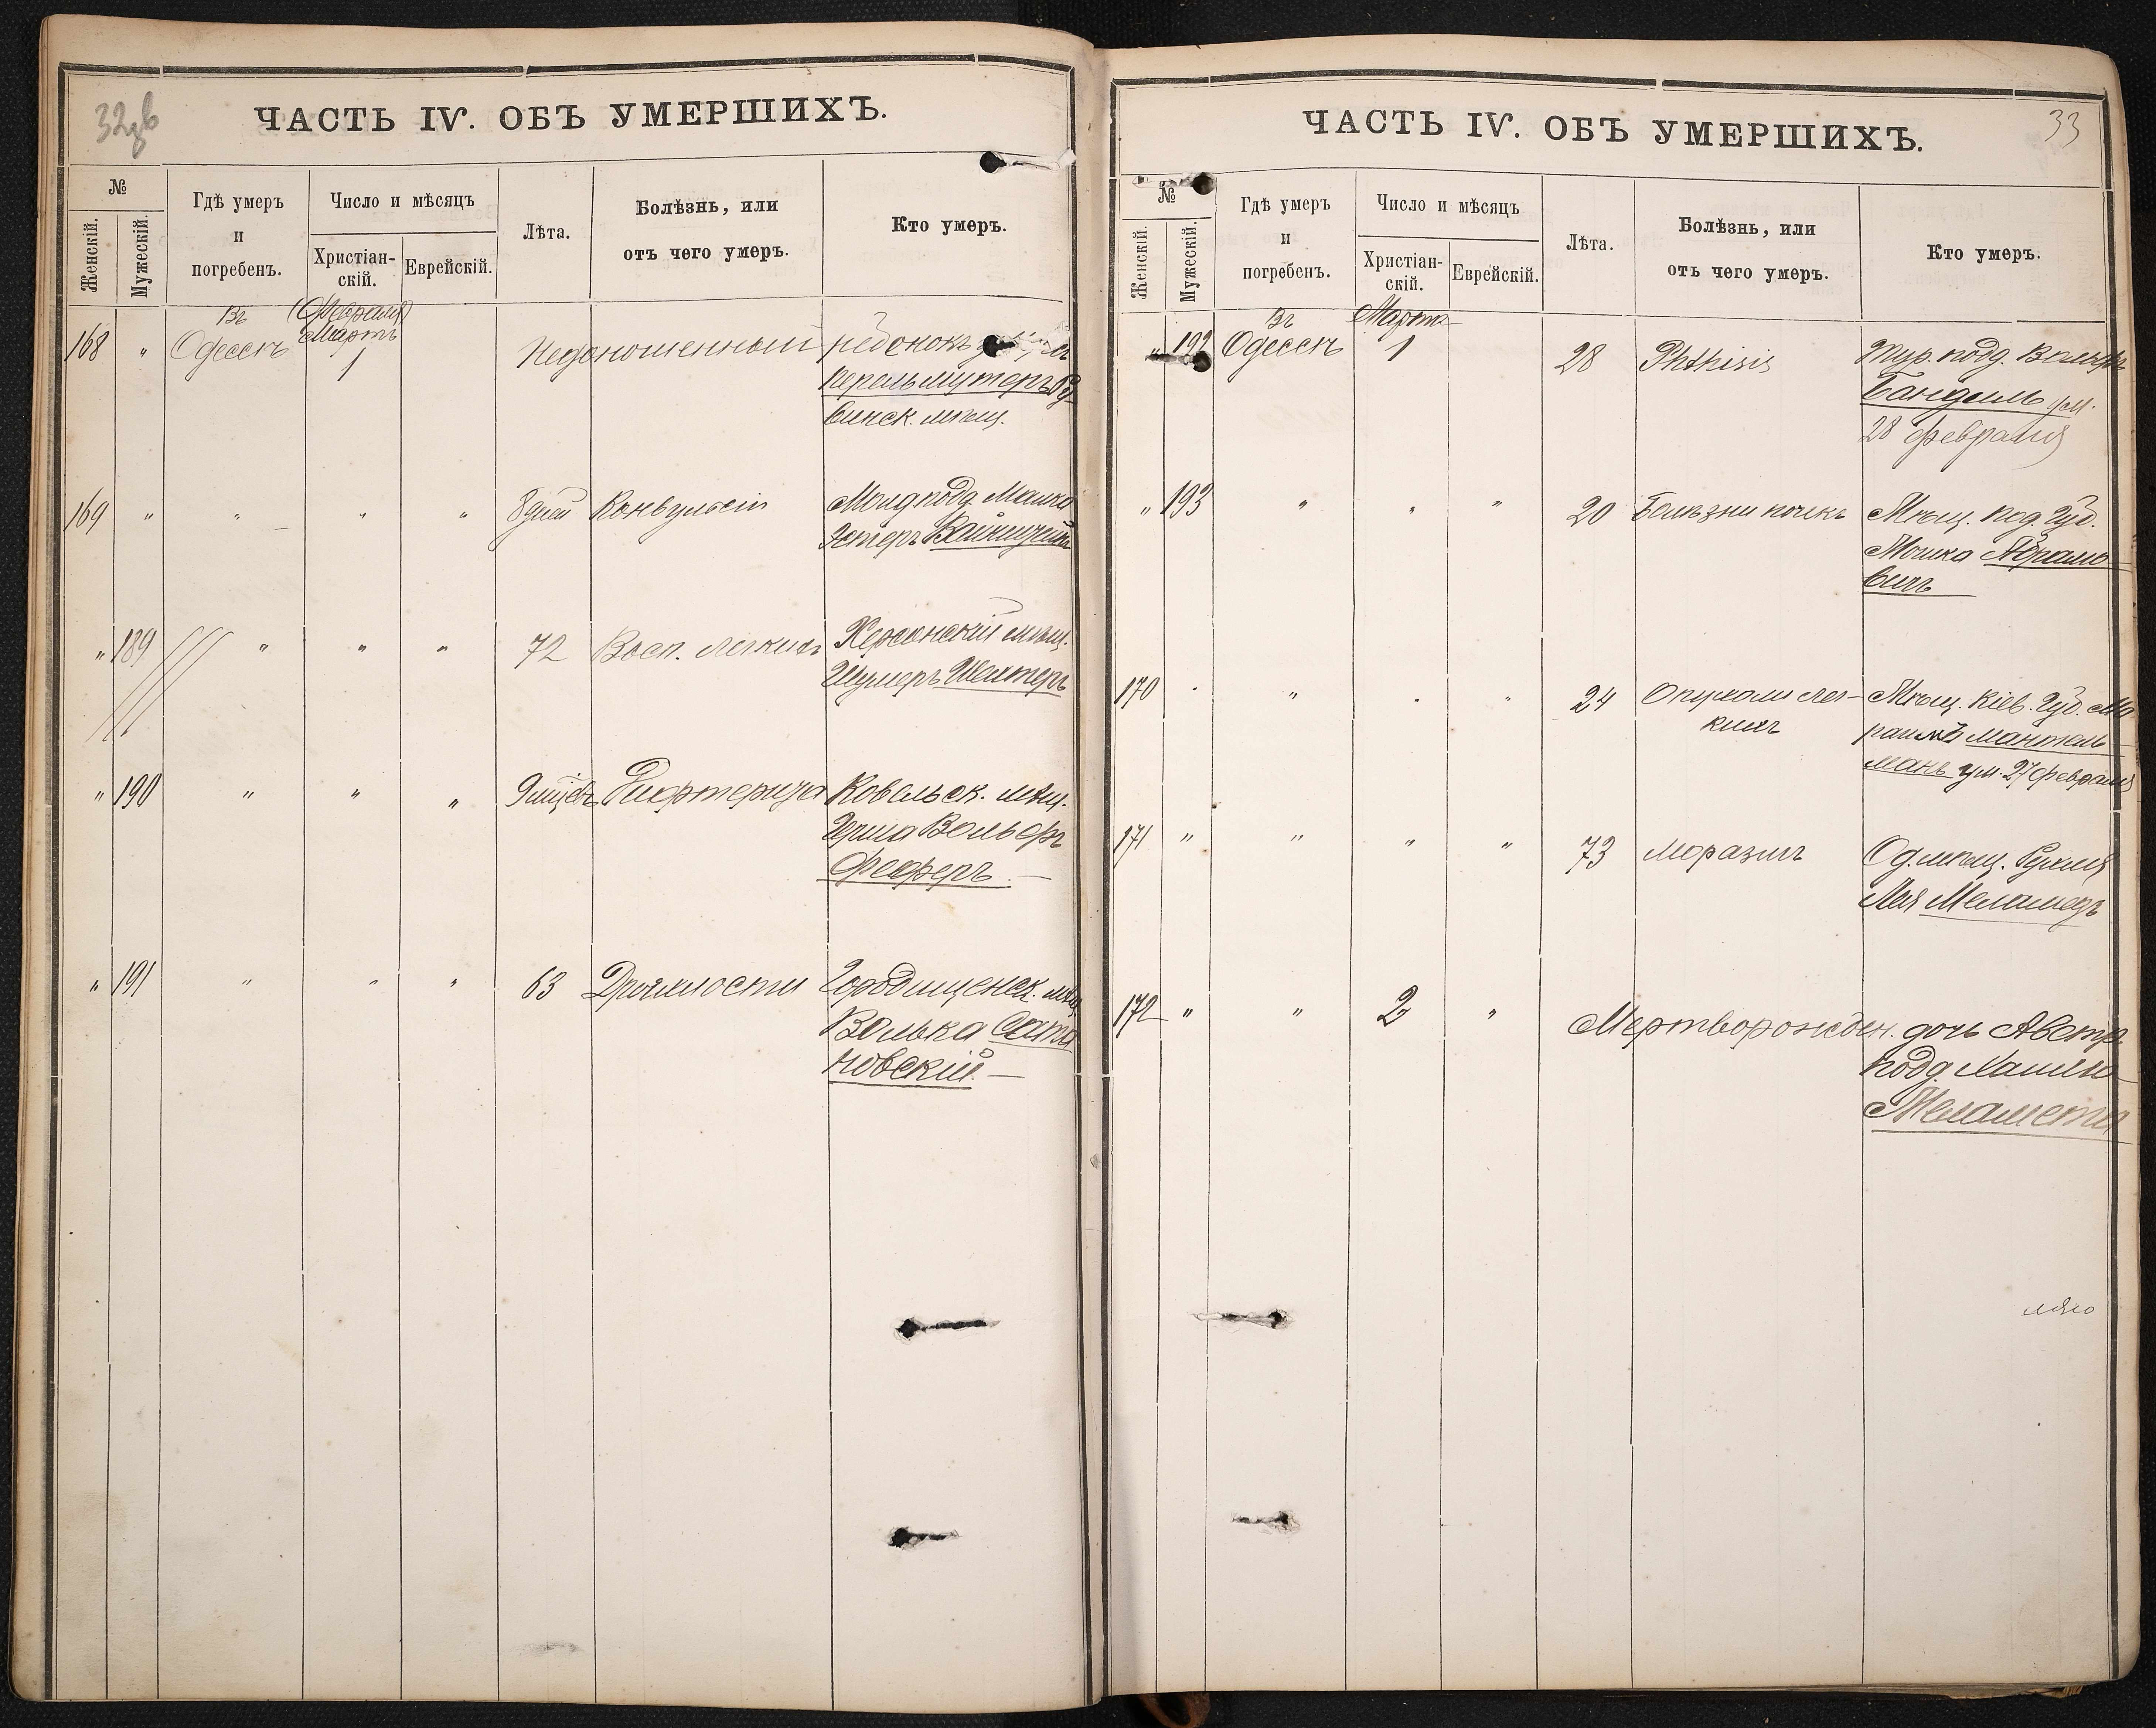 32
ЧАСТЬ IV. ОБЪ УМЕРШИХЪ.
№
Женскій.
Мужескій.
Гдѣ умеръ
и
погребенъ.
Число и мѣсяцъ
Христіан-
скій.
Еврейскій.
Лѣта.
Болѣзнь, или
отъ чего умеръ.
Кто умеръ.
168 " Въ
Одессѣ
(Февраля)
Мартъ
1
Недоношенный ребенокъ
Перельмутеръ
винск. мѣщ.
169 " " " " 8 дней Конвульсіи Молд. подд. Малка
Эстеръ
" 189 " " " 72 Восп. легкихъ Херсонскій мѣщ.
Шумеръ Шехтеръ
" 190 " " " 9 мѣсцевъ Дифтерита Ковельск. мѣщ.
Вольфъ
Феферъ
" 191 " " " 63 Дряхлости Городищенск. мѣщ.
Волька Сата
новскій
33
ЧАСТЬ IV. ОБЪ УМЕРШИХЪ.
№
Женскій.
Мужескій.
Гдѣ умеръ
и
погребенъ.
Число и мѣсяцъ
Христіан-
скій.
Еврейскій.
Лѣта.
Болѣзнь, или
отъ чего умеръ.
Кто умеръ.
" 192 Въ
Одессѣ
Марта
1
28 Phthisis Тур. подд. Вольфъ
Бандель ум.
28 февраля
" 193 " " " 20 Болѣзни почекъ Мѣщ. Под. Губ.
Мошка Абрамо-
вичъ
170 " " " " 24 Опухоли лег-
кихъ
Мѣщ. Кіев. Губ.
Мантель-
манъ ум. 27 февраля
171 " " " " 73 Маразмъ Од. мѣщ. Рухля
Лея Меламедъ
172 " " 2 " Мертворожден. дочь Австр.
подд.